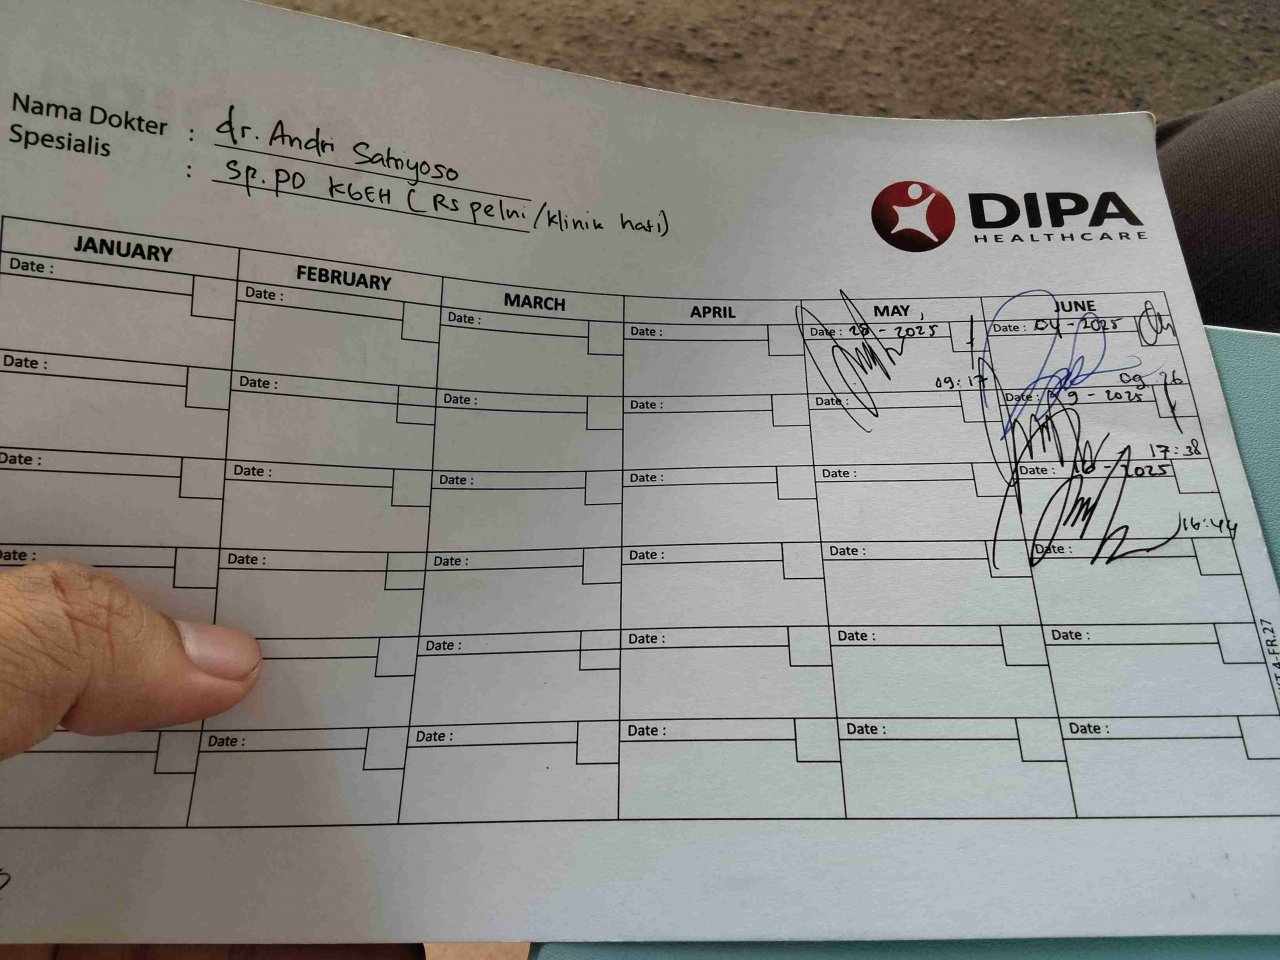 Nama Dokter : dr. Andri Satriyoso
Spesialis : Sp.PD KGEH (RS pelni/klinik hati)
DIPA
HEALTHCARE
JANUARY FEBRUARY MARCH APRIL MAY JUNE
Date : Date : Date : Date : Date : 28 - 2025 Date : 04 - 2025
09:17 09 26
Date : Date : Date : Date : Date : Date : 9 - 2025
17:38
Date : Date : Date : Date : Date : Date : 2025
16:44
Date : Date : Date : Date : Date : Date :
Date : Date : Date : Date :
Date : Date : Date : Date : Date :